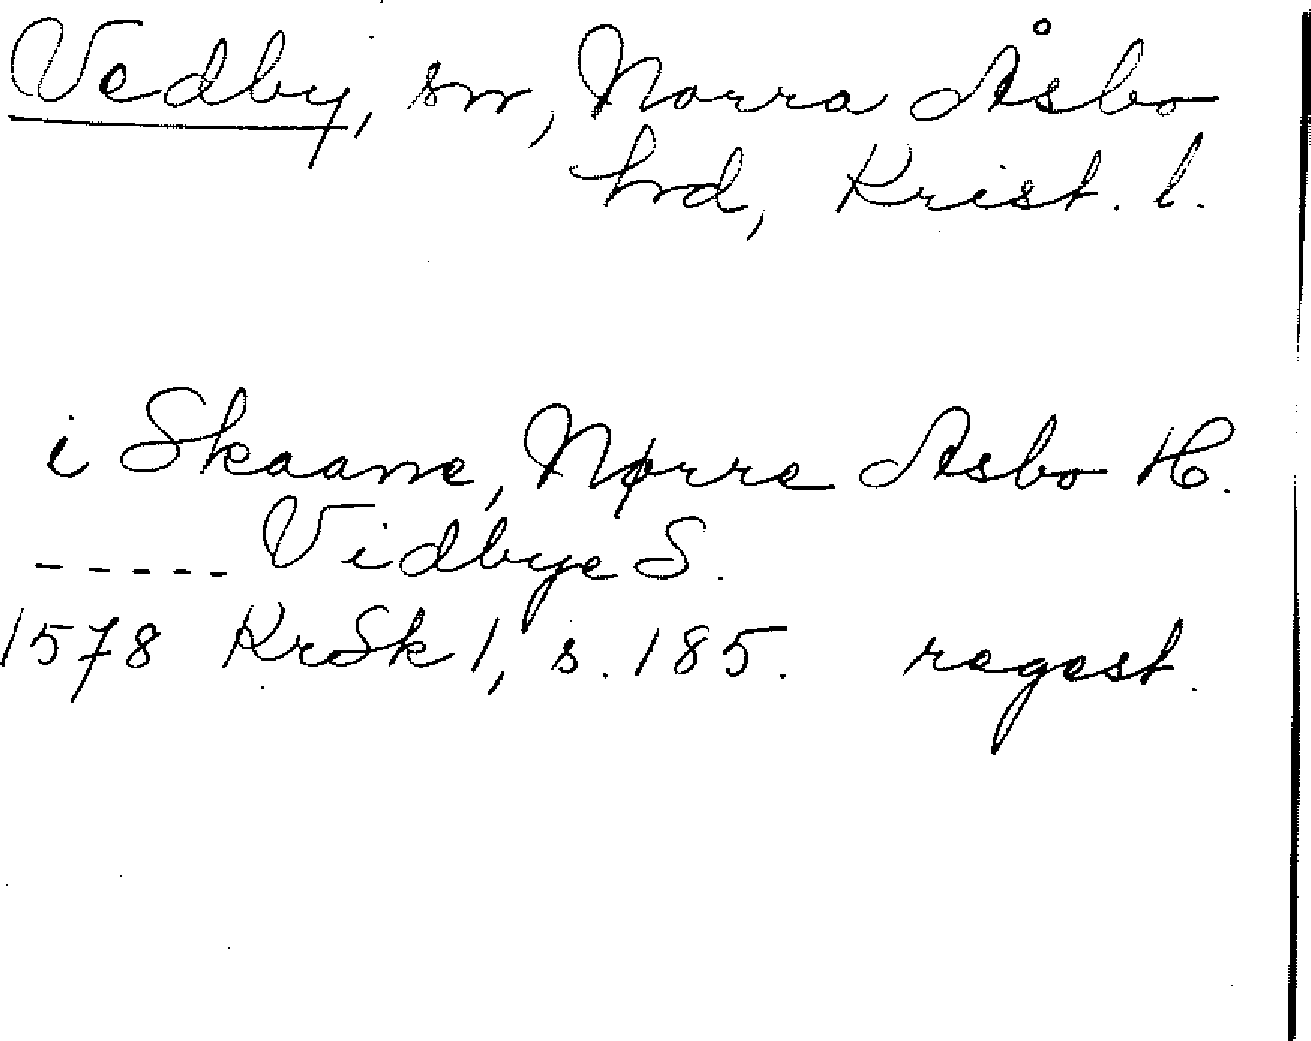 Vedby, sn, Norra Åsbo
hrd, Krist. l.
i Skaane, Nørre Asbo H.
----- Vidbye S.
1578 KrSk 1, s. 185. regest.